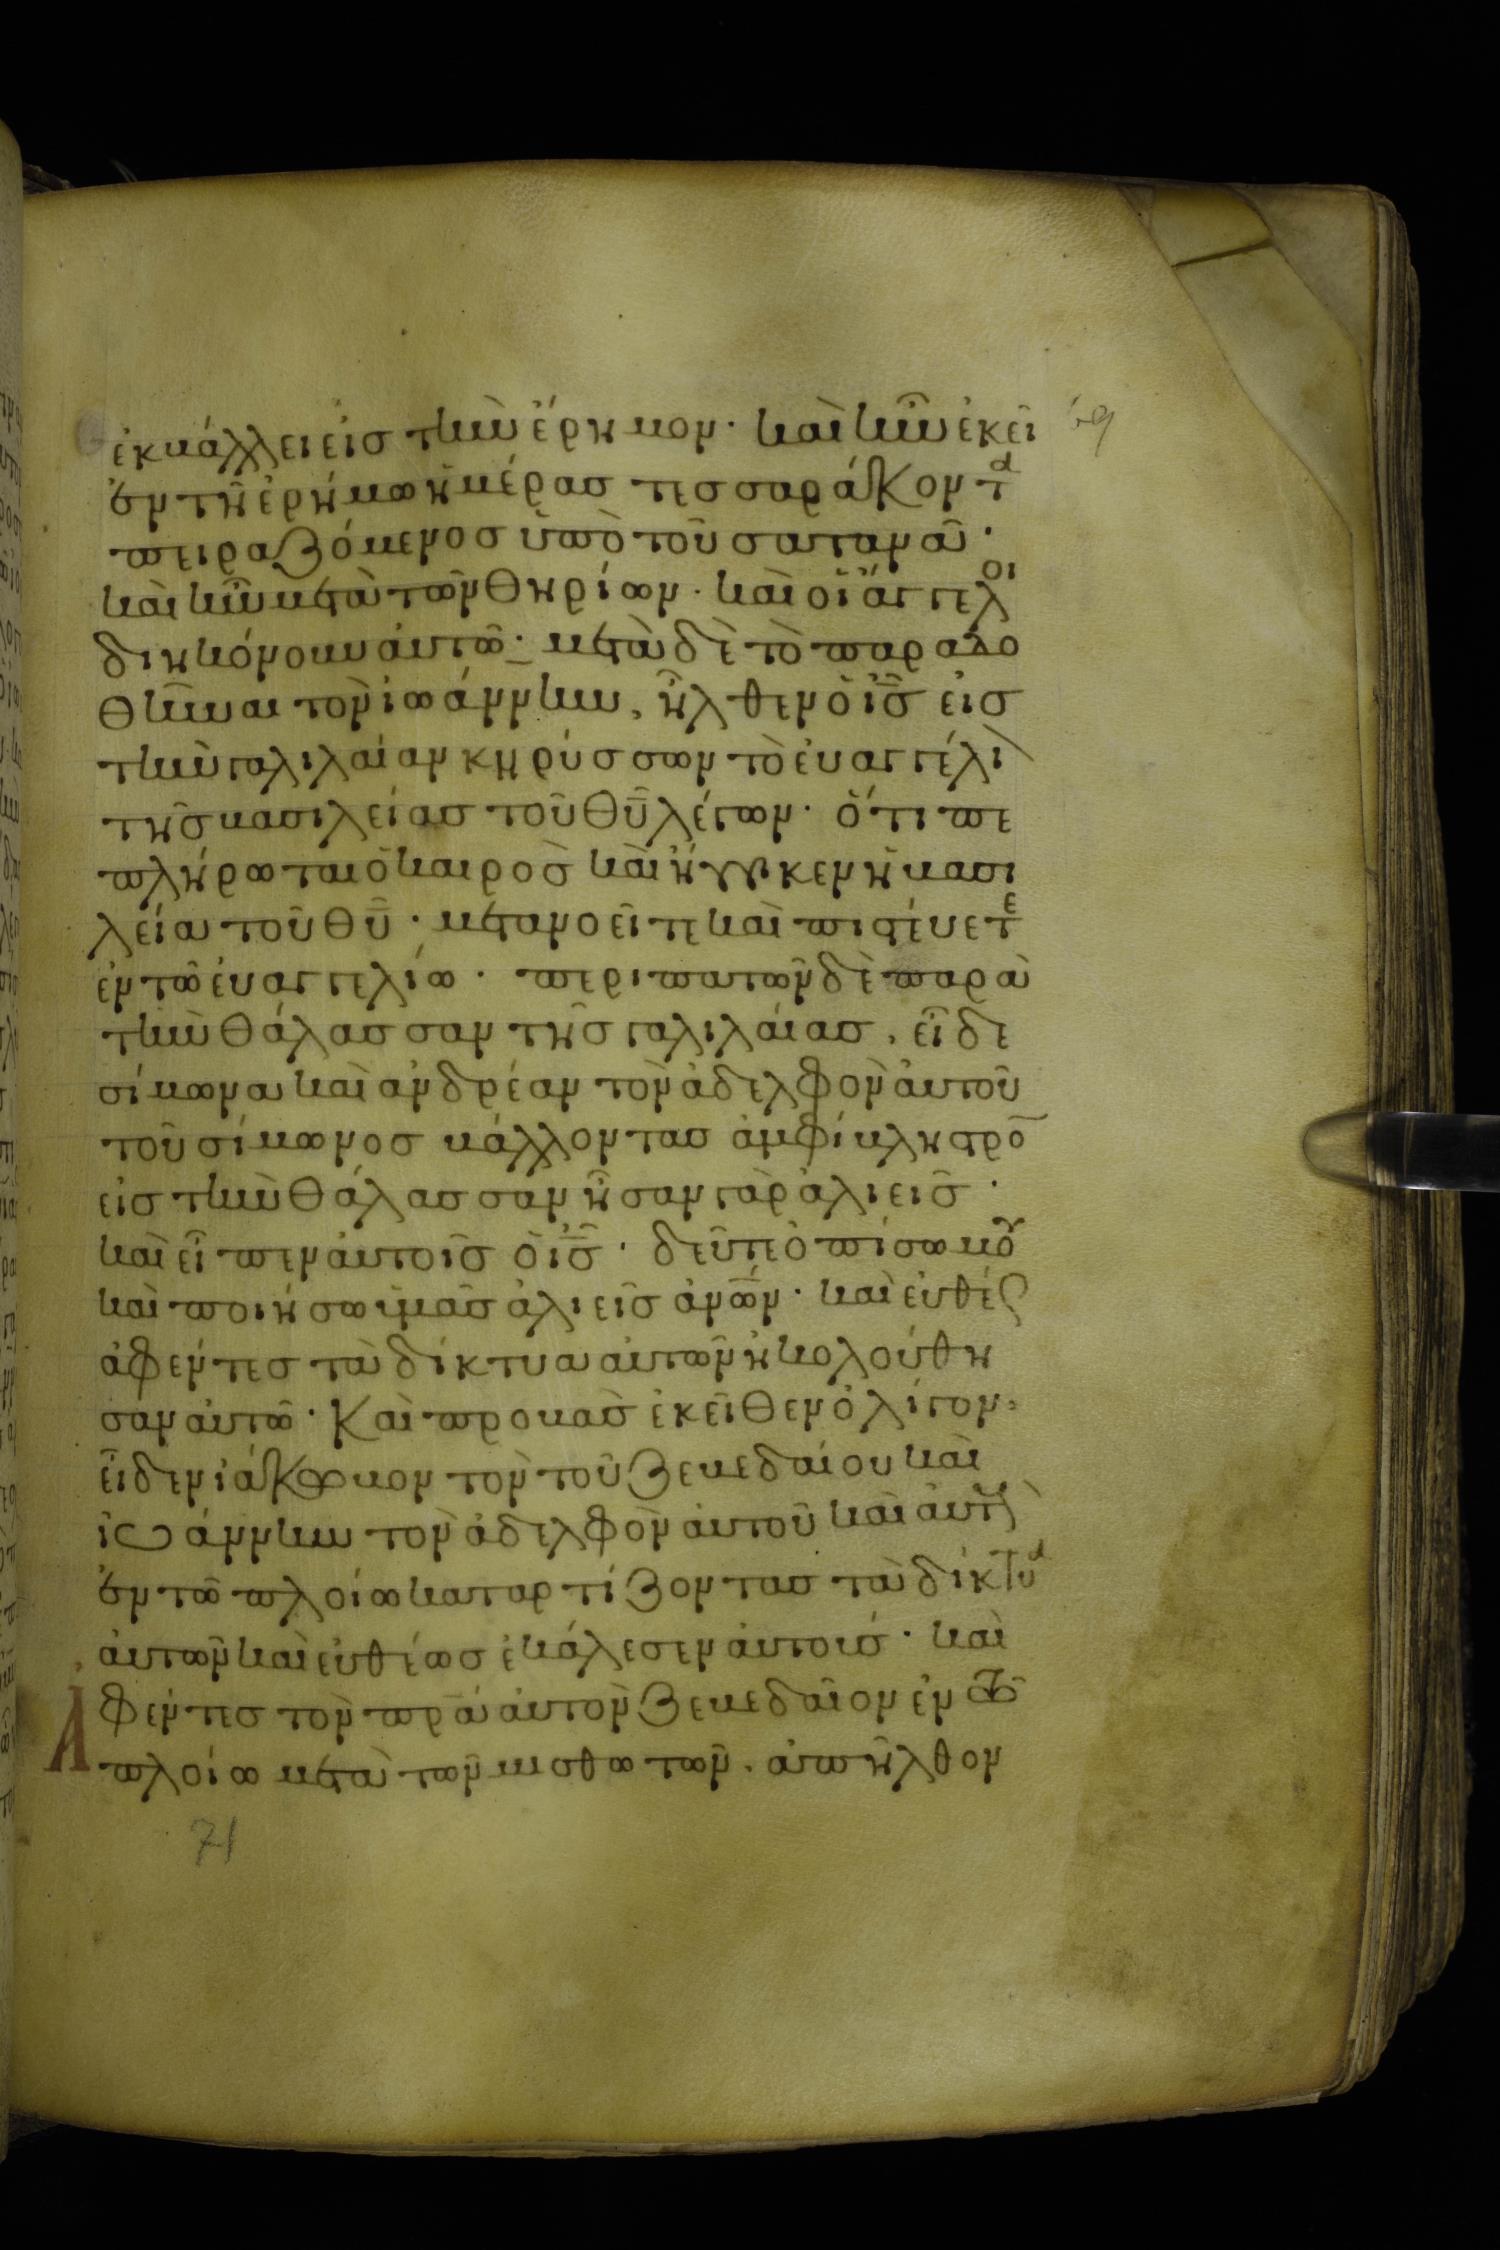 ἐκβάλλει εἰς τὴν ἔρημον · καὶ ἦν ἐκεῖ
ἐν τῇ ἐρήμω ἡμέρας τεσσαράκοντα
πειραζόμενος ὑπὸ τοῦ σατανᾶ ·
καὶ ἦν μετὰ τῶν θηρίων · καὶ οἱ ἄγγελοι
διηκόνουν αὐτῶ · μετὰ δὲ τὸ παραδο
θῆναι τὸν ἰωάννην, ἦλθεν ὁ ις εἰς
τὴν γαλιλαίαν κηρύσσων τὸ εὐαγγέλι
τῆς βασιλείας τοῦ θυ λέγων · ὅτι πε
πλήρωται ὁ καιρὸς καὶ ἤγγικεν ἡ βασι
λεία τοῦ θυ · μετανοεῖτε καὶ πιστεύετε
ἐν τῶ εὐαγγελίω · περιπατῶν δὲ παρὰ
τὴν θάλασσαν τῆς γαλιλαίας, εἶδε
σίμωνα καὶ ἀνδρέαν τὸν ἀδελφὸν αὐτοῦ
τοῦ σίμωνος βάλλοντας ἀμφίβληστρο
εἰς τὴν θάλασσαν ἦσαν γὰρ ἁλιεῖς ·
καὶ εἶπεν αὐτοῖς ὁ ις · δεῦτε ὀπίσω μου
καὶ ποιήσω ὑμᾶς ἁλιεῖς ἀνων · καὶ εὐθέως
ἀφέντες τὰ δίκτυα αὐτῶν ἠκολούθη
σαν αὐτῶ · Καὶ προβὰς ἐκεῖθεν ὀλίγον ·
εἶδεν ἰάκωβον τὸν τοῦ ζεβεδαίου καὶ
ἰωάννην τὸν ἀδελφὸν αὐτοῦ καὶ αὐτοὺς
ἐν τῶ πλοίω καταρτίζοντας τὰ δίκτυα
αὐτῶν καὶ εὐθέως ἐκάλεσεν αὐτούς · καὶ
Ἀφέντες τὸν πρα αὐτῶν ζεβεδαῖον ἐν τῶ
πλοίω μετὰ τῶν μισθωτῶν · ἀπῆλθον
71